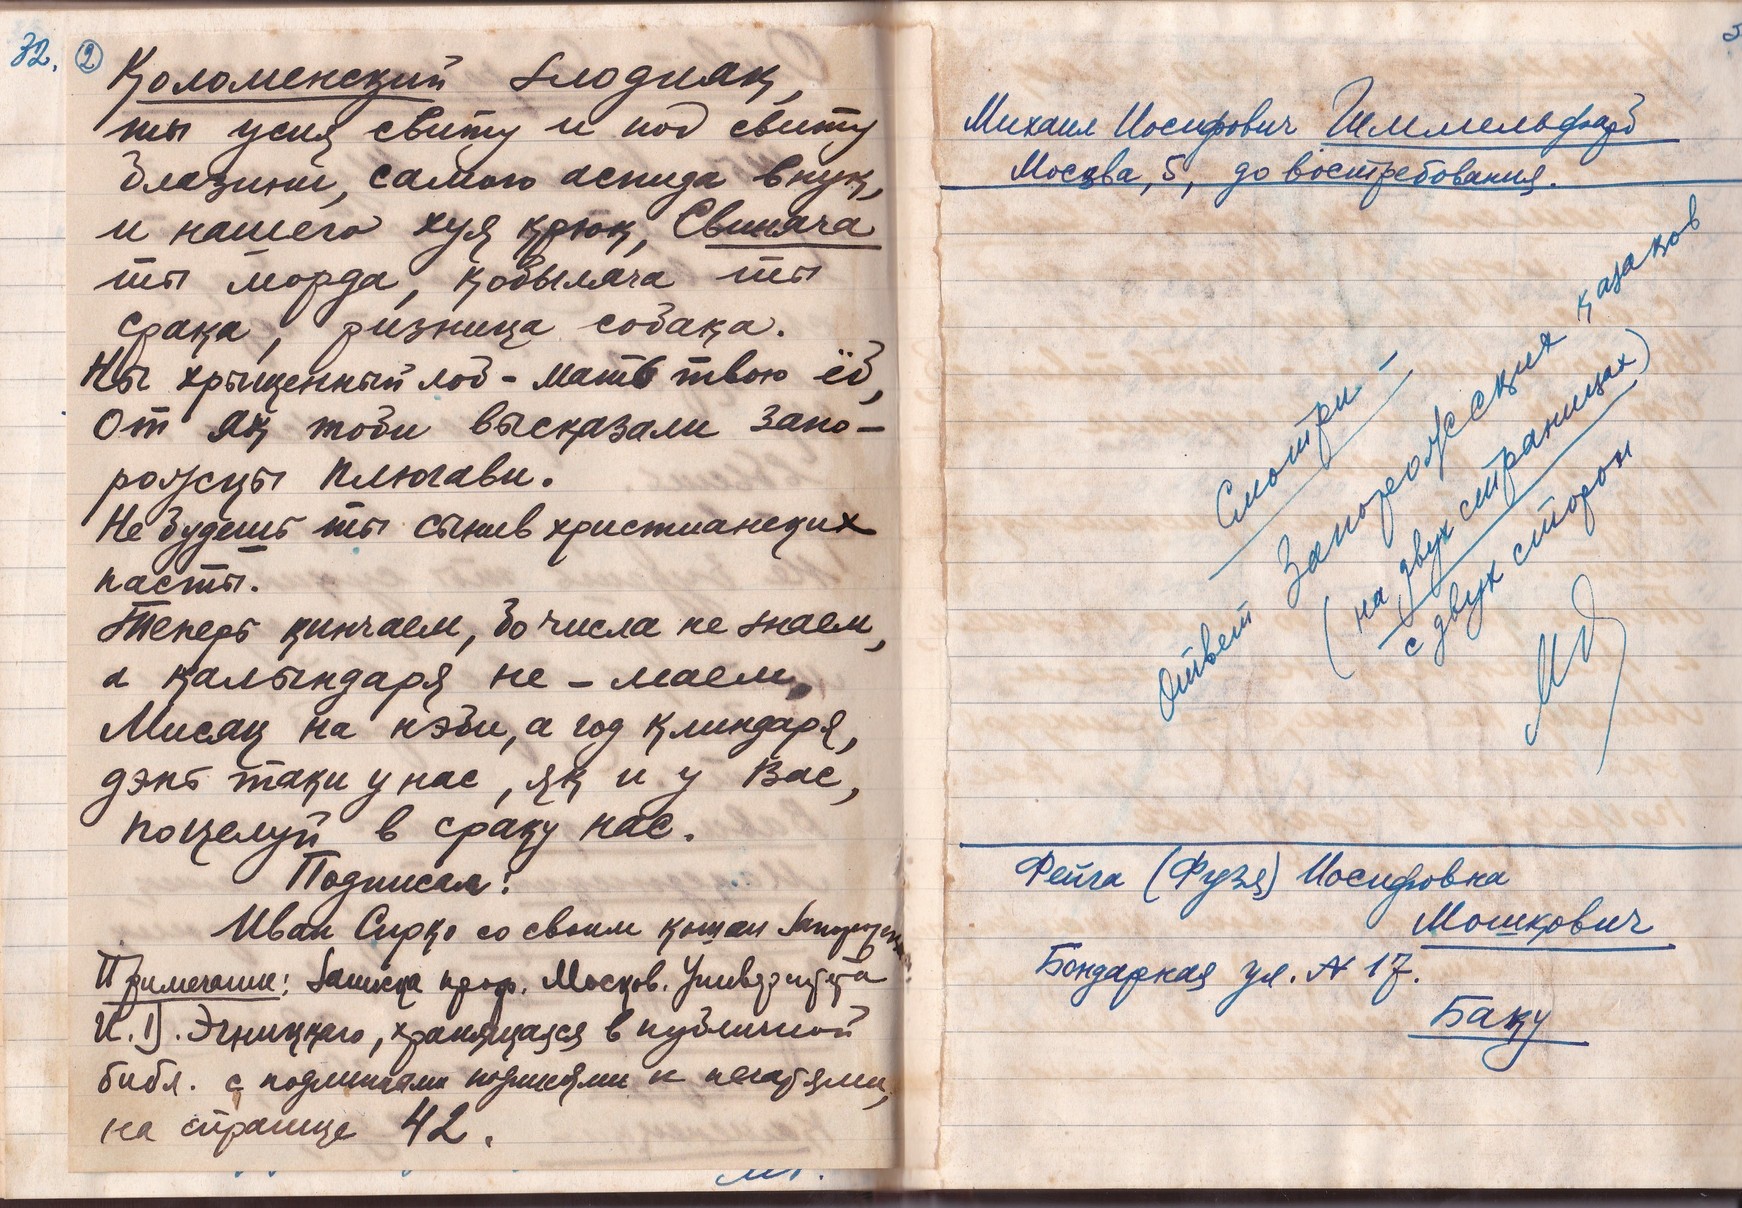 32. 2
Коломенский злодияк,
ты усия свиту и под свиту
блазини, самого аспида внук,
и нашего хуя крюк, Свинача
ты морда, кобыляча ты
срака, ризница собака.
Ны хрыщенный лоб - мать твою ёб,
От як тоби высказали Запо-
рожцы плюгави.
Не будешь ты сынив христианских
пасты.
Теперь кинчаем, бо числа не знаем,
а калындаря не - маем,
Мисяц на нэби, а год клиндаря,
дэнь таки у нас, як и у Вас,
поцелуй в сраку нас.
Подписал:
Иван Сирко со своим кошам
Примечание: Записка проф. Москов.
И. хранящаяся в публичной
библ. с подлинными подписями и печатями,
на странице 42.
Михаил Иосифович Шиммельфарб
Москва, 5, до востребования.
Смотри -
Ответ Запорожских казаков
(на двух страницах)
с двух сторон
Фейга (Фузя) Иосифовна
Мошкович
Бондарная ул. № 17.
Баку